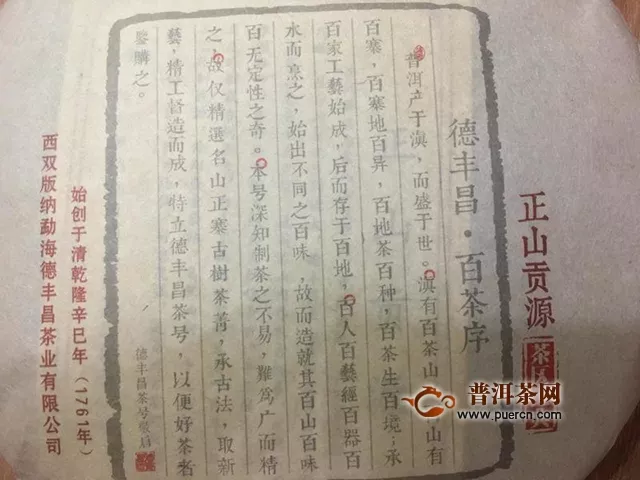 正山贡源
德丰昌·百茶序
普洱产于滇，而盛于世。滇有百茶山，山有
百寨，百寨地百异，百地茶百种，百茶生百境；承
百家工藝始成，后而存于百地，百人百藝經百器百
水而烹之，始出不同之百味，故而造就其百山百味
百无定性之奇。本号深知制茶之不易，難爲广而精
之，故仅精選名山正寨古樹茶菁，承古法，取新
藝，精工督造而成，特立德丰昌茶号，以便好茶者
鑒購之。
德丰昌茶号
始创于清乾隆辛巳年（1761年）
西双版纳勐海德丰昌茶业有限公司
普洱茶网
www.puercn.com